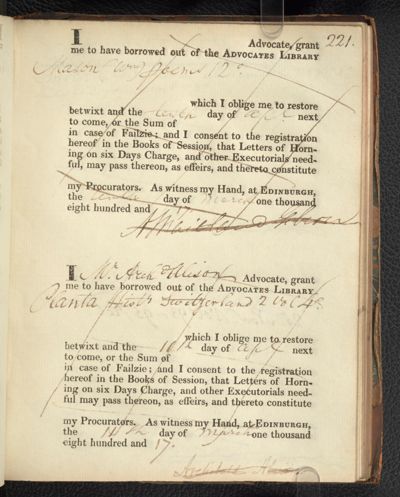 I Advocate, grant 221.
me to have borrowed out of the ADVOCATES LIBRARY
Mason Wm Poems 12o
which I oblige me to restore
betwixt and the tenth day of Sepr next
to come, or the Sum of
in case of Failzie; and I consent to the registration
hereof in the Books of Session, that Letters of Horn-
ing on six Days Charge, and other Executorials need-
ful, may pass thereon, as effeirs, and thereto constitute
my Procurators. As witness my Hand, at EDINBURGH,
the day of March one thousand
eight hundred and
I Mr. Archd Alison Advocate, grant
me to have borrowed out of the ADVOCATES LIBRARY
Planta Histy Switzerland 2 Vol 4o
which I oblige me to restore
betwixt and the 10th day of Sepr next
to come, or the Sum of
in case of Failzie; and I consent to the registration
hereof in the Books of Session, that Letters of Horn-
ing on six Days Charge, and other Executorials need-
ful may pass thereon, as effeirs, and thereto constitute
my Procurators. As witness my Hand, at EDINBURGH,
the day of March one thousand
eight hundred and 17.
Archibald Alison